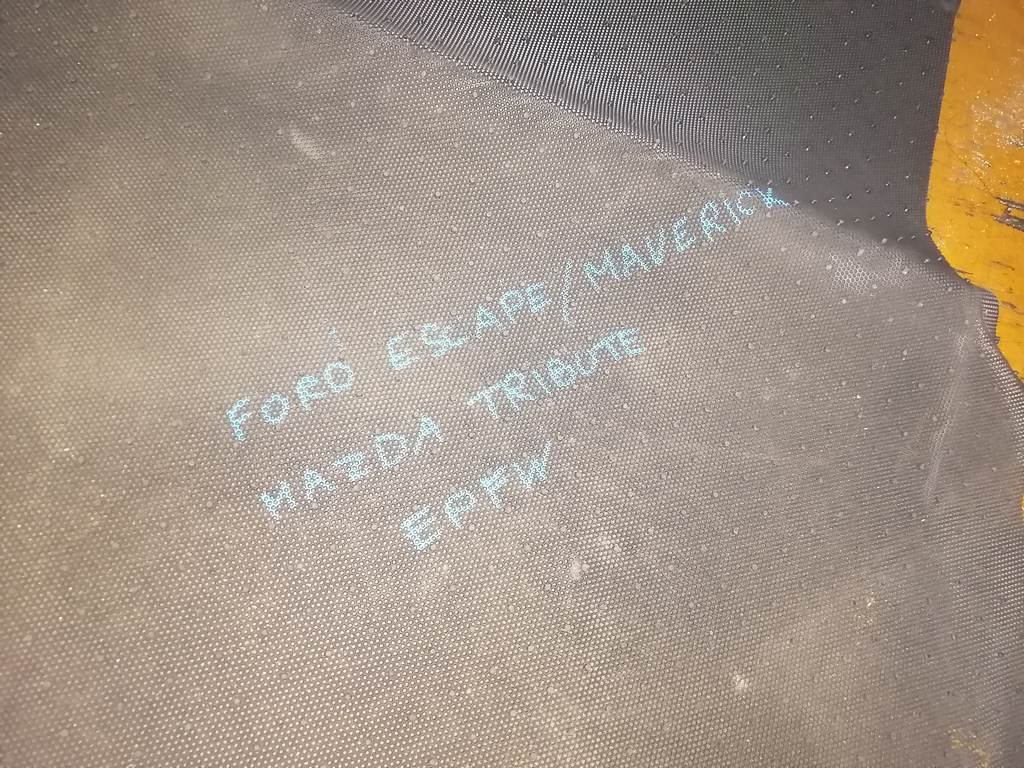 FORD ESCAPE/MAVERICK
MAZDA TRIBUTE
EPFW